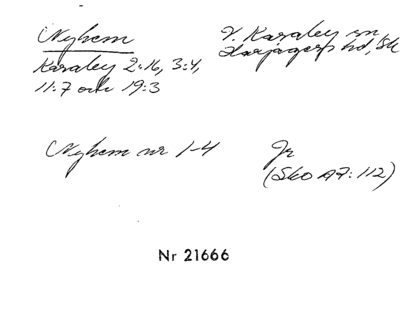 Nyhem
V. Karaby sn
Harjagers hd, Sk
Karaby 2:16, 3:4,
11:7 och 19:3
Nyhem nr 1-4
Jr
(Sko A7:112)
Nr 21666